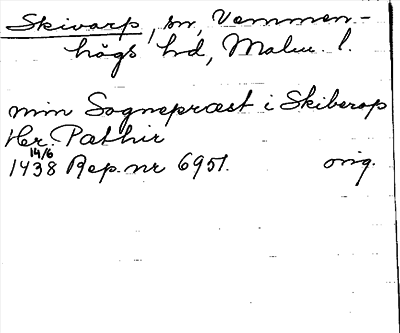 Skivarp, sn, Vemmen-
högs hd, Malm. l.
min Sognepræst i Skiberop
Hr. Pæthir
14/6
1438 Rep. nr 6951. orig.